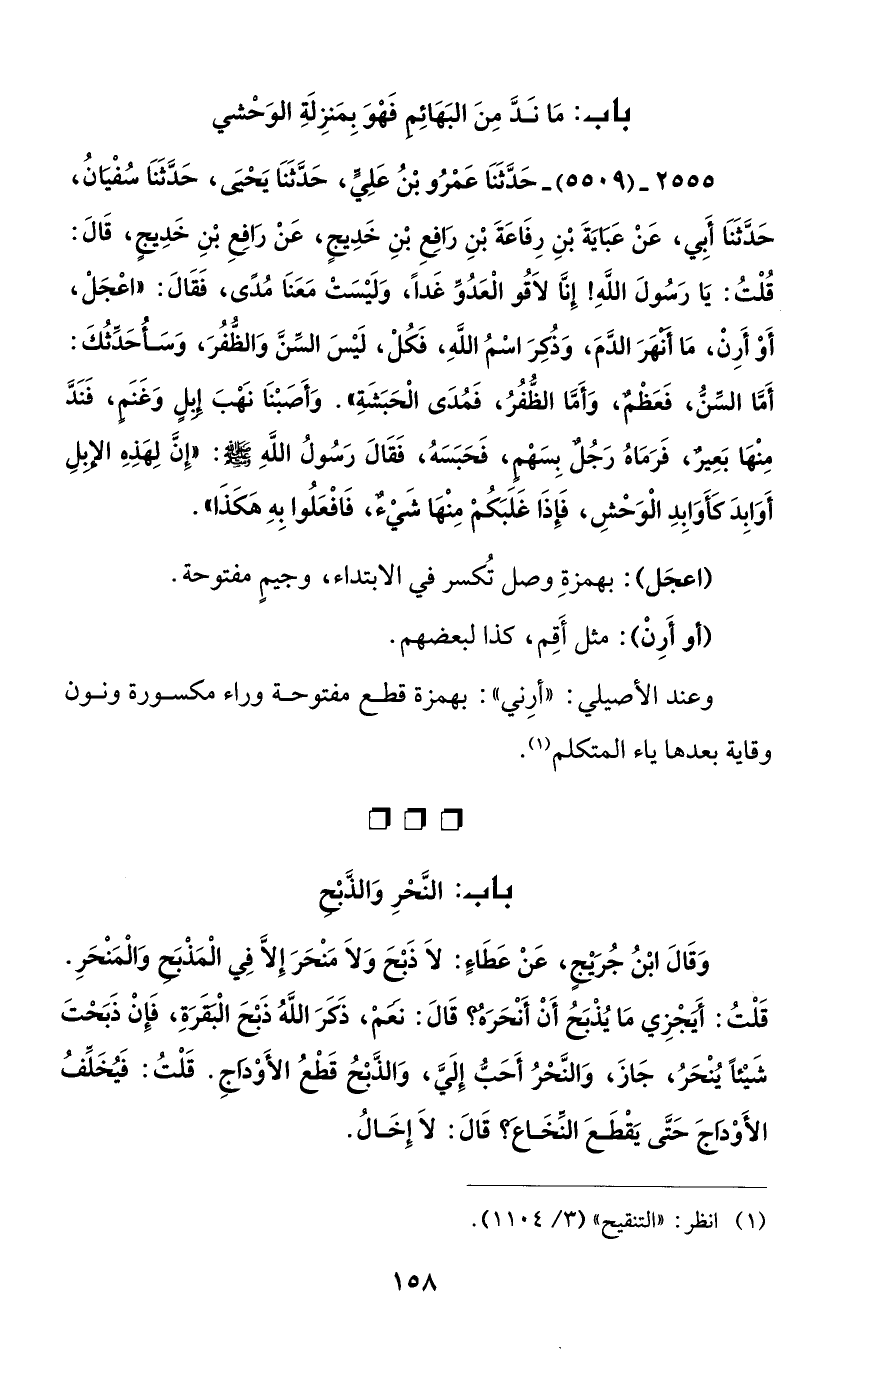 باب: مَا نَدَّ مِنَ البَهَائِمِ فَهْوَ بِمَنزِلَةِ الوَحْشي
٢٥٥٥ ـ (٥٥٠٩) ـ حَدَّثَنَا عَمْرُو بْنُ عَلِيٍّ، حَدَّثَنَا يَحْيَى، حَدَّثَنَا سُفْيَانُ،
حَدَّثَنَا أَبِي، عَنْ عَبَايَةَ بْنِ رِفَاعَةَ بْنِ رَافِعِ بْنِ خَدِيجٍ، عَنْ رَافِعِ بْنِ خَدِيجٍ، قَالَ:
قُلْتُ: يَا رَسُولَ اللَّهِ! إِنَّا لاَقُو الْعَدُوِّ غَداً، وَلَيْسَتْ مَعَنَا مُدًى، فَقَالَ: «اعْجَلْ،
أَوْ أَرِنْ، مَا أَنْهَرَ الدَّمَ، وَذُكِرَ اسْمُ اللَّهِ، فَكُلْ، لَيْسَ السِّنَّ وَالظُّفُرَ، وَسَأُحَدِّثُكَ:
أَمَّا السِّنُّ، فَعَظْمٌ، وَأَمَّا الظُّفُرُ، فَمُدَى الْحَبَشَةِ». وَأَصَبْنَا نَهْبَ إِبِلٍ وَغَنَمٍ، فَنَدَّ
مِنْهَا بَعِيرٌ، فَرَمَاهُ رَجُلٌ بِسَهْمٍ، فَحَبَسَهُ، فَقَالَ رَسُولُ اللَّهِ ﷺ: «إِنَّ لِهَذِهِ الإِبِلِ
أَوَابِدَ كَأَوَابِدِ الْوَحْشِ، فَإِذَا غَلَبَكُمْ مِنْهَا شَيْءٌ، فَافْعَلُوا بِهِ هَكَذَا».
(اعجَل): بهمزةِ وصل تُكسر في الابتداء، وجيمٍ مفتوحة.
(أو أَرِنْ): مثل أَقِم، كذا لبعضهم.
وعند الأصيلي: «أرِني»: بهمزة قطع مفتوحة وراء مكسورة ونون
وقاية بعدها ياء المتكلم(١).
باب: النَّحْرِ وَالذَّبْحِ
وَقَالَ ابْنُ جُرَيْجٍ، عَنْ عَطَاءٍ: لاَ ذَبْحَ وَلاَ مَنْحَرَ إِلاَّ فِي الْمَذْبَحِ وَالْمَنْحَرِ.
قَلْتُ: أَيَجْزِي مَا يُذْبَحُ أَنْ أَنْحَرَهُ؟ قَالَ: نَعَمْ، ذَكَرَ اللَّهُ ذَبْحَ الْبَقَرَةِ، فَإِنْ ذَبَحْتَ
شَيْئاً يُنْحَرُ، جَازَ، وَالنَّحْرُ أَحَبُّ إِلَيَّ، وَالذَّبْحُ قَطْعُ الأَوْدَاجِ. قَلْتُ: فَيُخَلِّفُ
الأَوْدَاجَ حَتَّى يَقْطَعَ النِّخَاعَ؟ قَالَ: لاَ إِخَالُ.
(١) انظر: «التنقيح» (٣/ ١١٠٤).
١٥٨